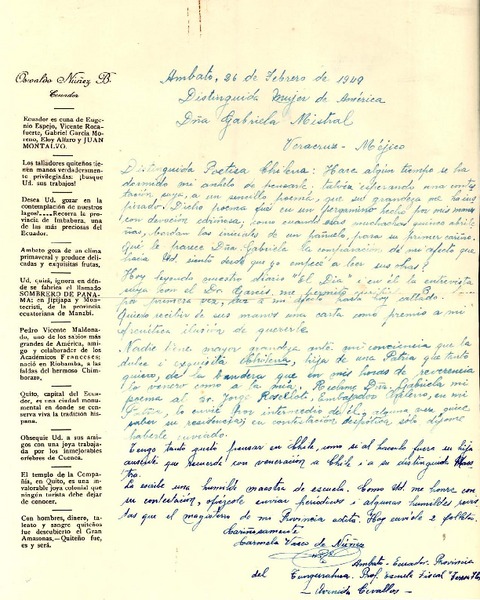 Osvaldo Núñez B.
Ecuador
Ecuador es cuna de Euge-
nio Espejo, Vicente Roca-
fuerte, Gabriel García Mo-
reno, Eloy Alfaro y JUAN
MONTALVO.
Los talladores quiteños tie-
nen manos verdaderamente
privilegiadas. ¡busque
Ud. sus trabajos!
Desea Ud. gozar en la
contemplación de nuestros
lagos?....Recorra la pro-
vincia de Imbabura, una
de las más preciosas del
Ecuador.
Ambato goza de un clima
primaveral y produce deli-
cadas y exquisitas frutas.
Ud. quizá, ignora en dón-
de se fabrica el llamado
SOMBRERO DE PANA-
MÁ: en Jipijapa y Mon-
tecristi, de la provincia
ecuatoriana de Manabí.
Pedro Vicente Maldona-
do, uno de los sabios más
grandes de América, ami-
go y colaborador de los
Académicos Franceses;
nació en Riobamba, a las
faldas del hermoso Chim-
borazo.
Quito, capital del Ecua-
dor, es una ciudad monu-
mental en donde se conser-
va viva la tradición his-
pana.
Obsequie Ud. a sus ami-
gos con una joya trabaja-
da por los inmejorables
orfebres de Cuenca.
El templo de la Compa-
ñía, en Quito, es una in-
valorable joya colonial que
ningún turista debe dejar
de conocer.
Con hombres, dinero, ta-
lento y sangre quiteños
fue descubierto el Gran
Amazonas.—Quiteño fue,
es y será.
Ambato, 26 de Febrero de 1949
Distinguida Mujer de América
Dña Gabriela Mistral
Veracruz - Méjico
Distinguida Poetisa Chilena: Hace algún tiempo se ha
dormido mi anhelo de pensarle; había esperado una contes
tación suya, a un sencillo poema, que su grandeza me ha ins
pirado. Dicho poema que en un pergamino hecho por mis manos
con devoción, como cuando esas muchachas quince abrile
ñas, bordan las iniciales de un pañuelo, para su primer cariño.
Qué le parece Dña. Gabriela la comparación de mi afecto que
hacia Ud. siento desde que yo empecé a leer sus obras?
Hoy leyendo nuestro diario "El Día" i en él la entrevista
suya con el Dr.
por primera vez, mi afecto hasta hoy callado.
Quiero recibir de sus manos una carta como premio a mi
ilusión de quererla.
Nadie tiene mayor ante mi conciencia que la
dulce i exquisita, hija de una Patria que tanto
quiero, de la bandera que en mis horas de reverencia
la venero como a la mía. Reclame Dña. Gabriela mi
poema al Sr. Jorge, Embajador, en mi
le envié por intermedio de él,
saber su contestación
haberle enviado.
Tengo tanto gusto pensar en Chile, como si al hacerlo fuera su hija
ausente que recuerde con veneración a Chile i a su distinguida Maes
tra
Le escribe una humilde maestra de escuela. Como Ud. me honre con
su contestación, ofrézcole enviar periódicos i algunas humildes revis
tas que el magisterio de mi Provincia edita. Hoy envíole 2
Cariñosamente
Carmela Vasco de Núñez
Ambato - Ecuador. Provincia
del Tungurahua. Prof. Escuela Fiscal "Teresa
Avenida Cevallos -